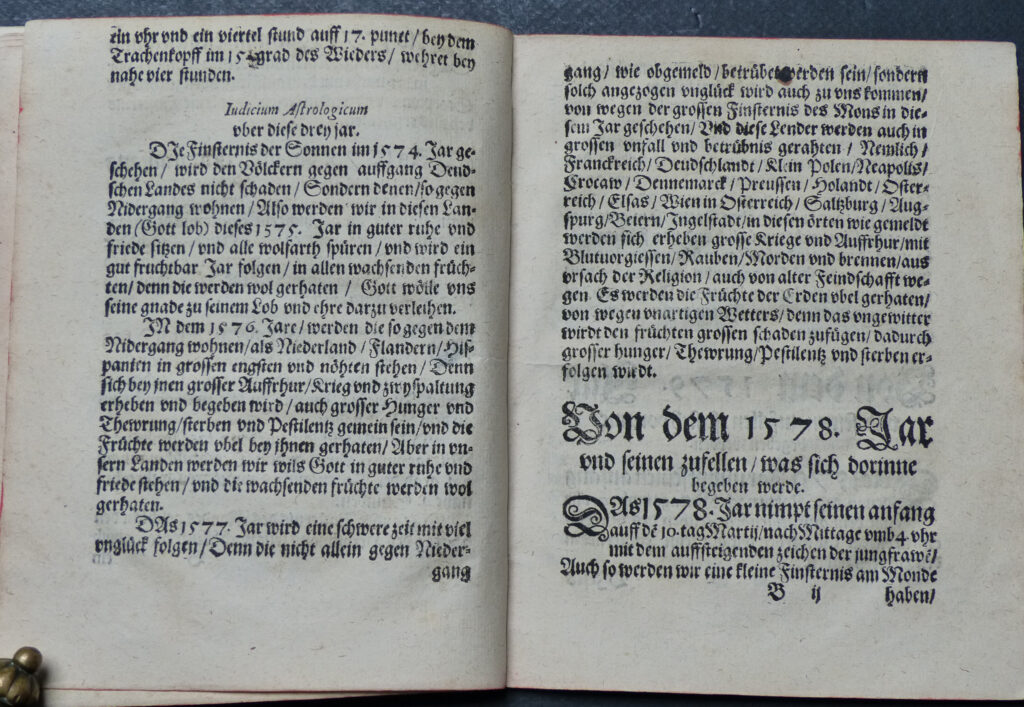 ein vhr vnd ein viertel stund auff 17. punct / bey dem
Trachenkopff im grad des Wieders / wehret bey
nahe vier stunden.
Iudicium Astrologicum
vber diese drey jar.
DIe Finsternis der Sonnen im 1574. Jar ge-
schehen / wird den Völckern gegen auffgang Deud-
schen Landes nicht schaden / Sondern denen / so gegen
Nidergang wohnen / Also werden wir in diesen Lan-
den (Gott lob) dieses 1575. Jar in guter ruhe vnd
friede sitzen / vnd alle wolfarth spüren / vnd wird ein
gut fruchtbar Jar folgen / in allen wachsenden früch-
ten / denn die werden wol gerhaten / Gott wölle vns
seine gnade zu seinem Lob vnd ehre darzu verleihen.
IN dem 1576. Jare / werden die so gegen dem
Nidergang wohnen / als Niederland / Flandern / His-
panien in grossen engsten vnd nöhten stehen / Denn
sich bey jnen grosser Auffrhur / Krieg vnd zwyspaltung
erheben vnd begeben wird / auch grosser Hunger vnd
Thewrung / sterben vnd Pestilentz gemein sein / vnd die
Früchte werden vbel bey ihnen gerhaten / Aber in vn-
sern Landen werden wir wils Gott in guter ruhe vnd
friede stehen / vnd die wachsenden früchte werden wol
gerhaten.
DAs 1577. Jar wird eine schwere zeit mit viel
vnglück folgen / Denn die nicht allein gegen Nieder-
gang
gang / wie obgemeld / betrübet werden sein / sondern
solch angezogen vnglück wird auch zu vns kommen /
von wegen der grossen Finsternis des Mons in die-
sem Jar geschehen / Vnd diese Lender werden auch in
grossen vnfall vnd betrübnis gerahten / Nemlich /
Franckreich / Deudschlandt / Klein Polen / Neapolis /
Crocaw / Dennemarck / Preussen / Holandt / Oster-
reich / Elsas / Wien in Osterreich / Saltzburg / Aug-
spurg / Beiern / Ingelstadt / in diesen örten wie gemeldt
werden sich erheben grosse Kriege vnd Auffrhur / mit
Blutuorgiessen / Rauben / Morden vnd brennen / aus
vrsach der Religion / auch von alter Feindschafft we-
gen Es werden die Früchte der Erden vbel gerhaten /
von wegen vnartigen Wetters / denn das vngewitter
wirdt den früchten grossen schaden zufügen / dadurch
grosser hunger / Thewrung / Pestilentz vnd sterben er-
folgen wirdt.
Von dem 1578. Jar
vnd seinen zufellen / was sich dorinne
begeben werde.
DAs 1578. Jar nimpt seinen anfang
auff dē 10. tag Martij / nach Mittage vmb 4 vhr
mit dem auffsteigenden zeichen der jungfrawē /
Auch so werden wir eine kleine Finsternis am Monde
B ij haben /